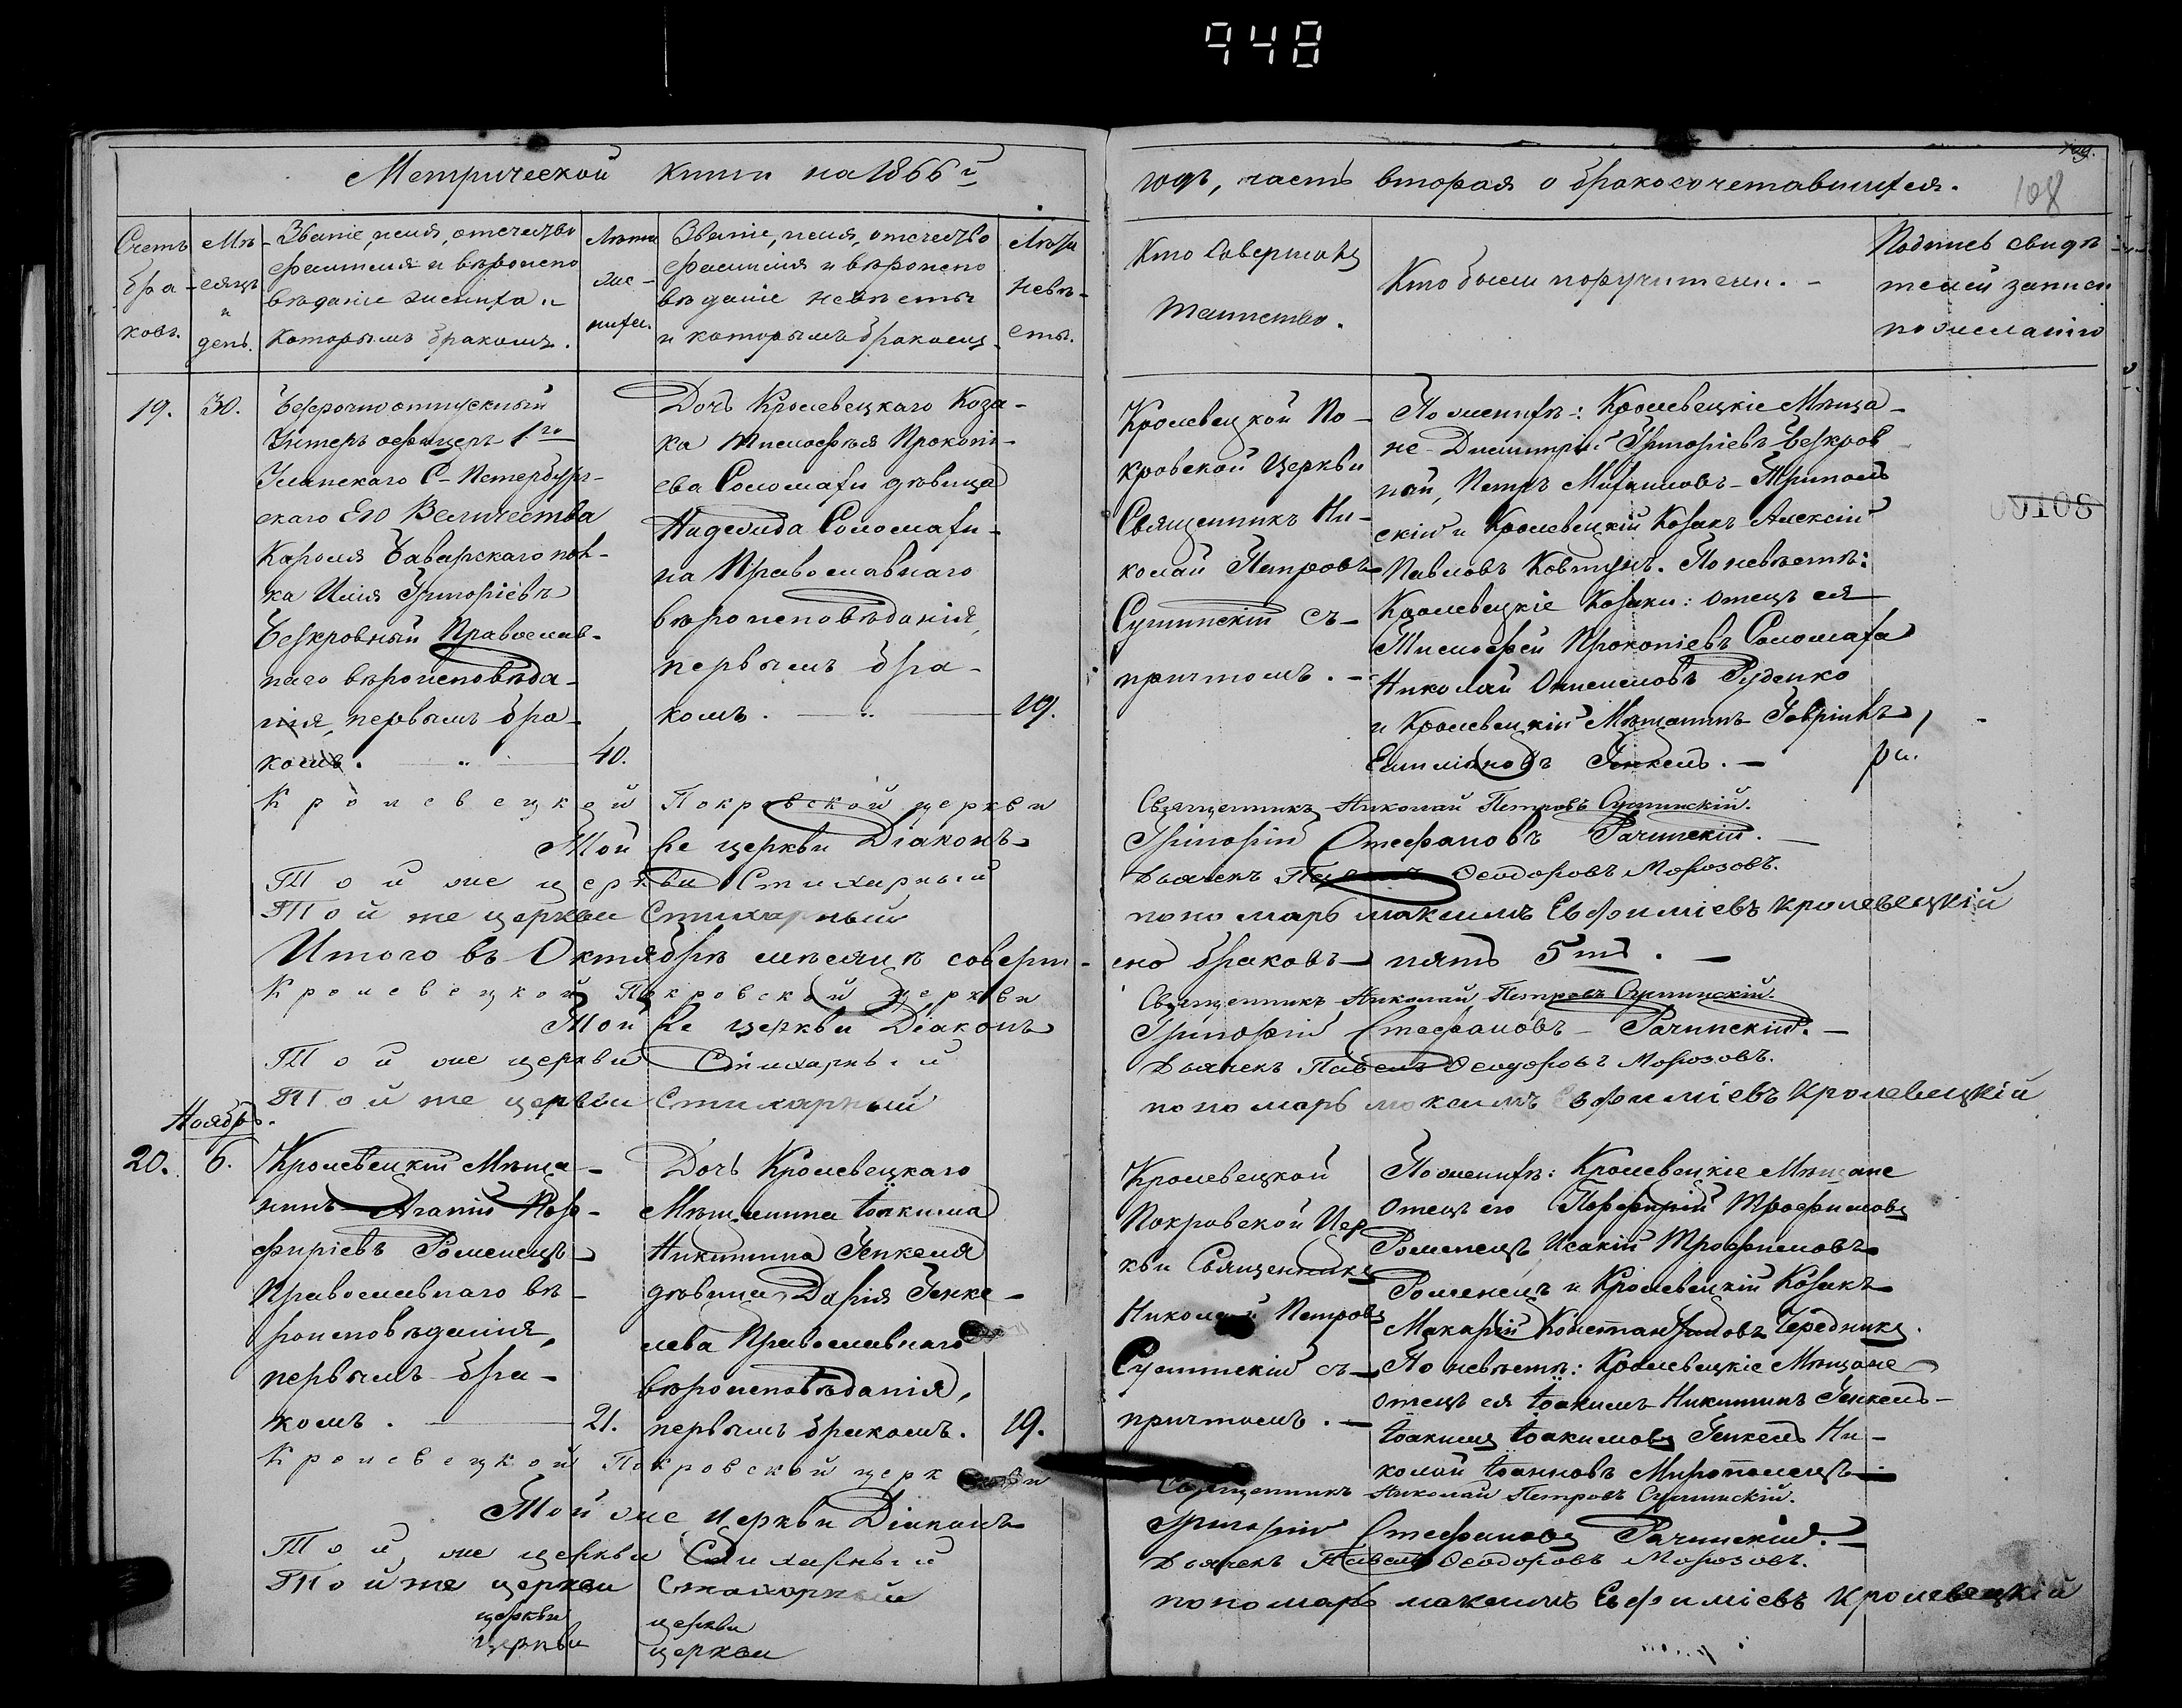 948
Метрической книги на 1866й
годъ, часть вторая о бракосочетавшихся.
108
Счетъ браковъ.
Мѣсяцъ и день.
Званіе, имя, отечество
фамилія и вѣроиспо
вѣданіе жениха и
которымъ бракомъ.
Лѣта
же-
ниха.
Званіе, имя, отечество
фамилія и вѣроиспо
вѣданіе невѣсты
и которымъ бракомъ
Лѣта
невѣ-
сты.
Кто совершалъ
таинство.
Кто были поручители. -
Подпись свидѣ
телей записи
по желанію
19.
30.
Безсрочно отпускный
Унтеръ офицеръ 1го
Уланскаго С-Петербург-
скаго Его Величества
Короля Баварскаго пол-
ка Илія Григоріевъ
Безкровный Православ-
наго вѣроисповѣда-
нія, первымъ бра-
комъ.
40.
Дочь Кролевецкаго Коза-
ка Тимофея Прокопі-
ева Соломахи дѣвица
Надежда Соломахи-
на Православнаго
вѣроисповѣданія,
первымъ бра-
комъ.
19.
Кролевецкой По-
кровской Церкви
Священникъ Ни-
колай Петровъ
Сушинскій съ
причтомъ. -
По женихѣ: Кролевецкіе Мѣща-
не Димитрій Григоріевъ Безкров
ный, Петръ Михаиловъ Триполь
скій и Кролевецкій Козакъ Алексій
Павловъ Ковтунъ. По невѣстѣ:
Кролевецкіе Козаки: отецъ ея
Тимофей Прокопіевъ Соломаха
Николай Онисимовъ Руденко
и Кролевецкій Мѣщанинъ Гавріилъ
Емиліановъ Генкель. -
Кролевецкой Покровской церкви
Священникъ Николай Петровъ Сушинскій.
Той же церкви Діаконъ
Григорій Стефановъ Рачинскій.
Той же церкви Стихарный
Дьячекъ Павелъ Ѳеодоровъ Морозовъ.
Той же церкви Стихарный
пономарь Максимъ Евфиміевъ Кролевецкій
Итого въ Октябрѣ мѣсяцѣ соверш-
ено браковъ пять 5ть. -
Кролевецкой Покровской церкви
Священникъ Николай Петровъ Сушинскій.
Той же церкви Діаконъ
Григорій Стефановъ Рачинскій. -
Той же церкви Стихарный
Дьячекъ Павелъ Ѳеодоровъ Морозовъ.
Той же церкви Стихарный
пономарь Максимъ Евфиміевъ Кролевецкій
Ноябрь.
20.
6.
Кролевецкій Мѣща-
нинъ Агапій Пор-
фиріевъ Роменецъ
Православнаго вѣ-
роисповѣданія,
первымъ бра-
комъ.
21.
Дочь Кролевецкаго
Мѣщанина Іоакима
Никитина Генкеля
дѣвица Дарія Генке-
лева Православнаго
вѣроисповѣданія,
первымъ бракомъ.
19.
Кролевецкой
Покровской Цер
кви Священникъ
Николай Петровъ
Сушинскій съ
причтомъ. -
По женихѣ: Кролевецкіе Мѣщане
отецъ его Порфирій Трофимовъ
Роменецъ Исакій Трофимовъ
Роменецъ и Кролевецкій Козакъ
Макарій Константиновъ Чередникъ.
По невѣстѣ: Кролевецкіе Мѣщане
отецъ ея Іоакимъ Никитинъ Генкель
Іоакимъ Іоакимовъ Генкель Ни-
колай Іоанновъ Мирополецъ
Кролевецкой Покровской церкви
Священникъ Николай Петровъ Сушинскій.
Той же церкви Діаконъ
Григорій Стефановъ Рачинскій. -
Той же церкви Стихарный
Дьячекъ Павелъ Ѳеодоровъ Морозовъ.
Той же церкви Стихарный
пономарь Максимъ Евфиміевъ Кролевецкій
церкви церкви
церкви церкви